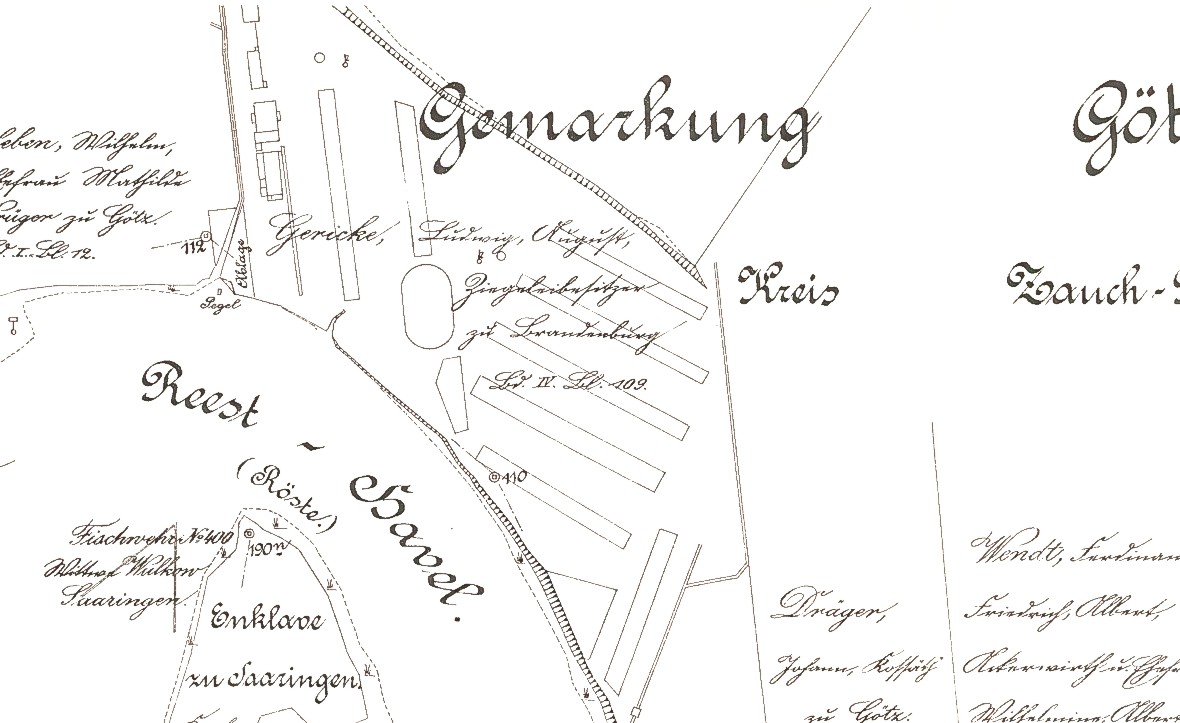 Gemarkung Göt
leben, Wilhelm,
Ehefrau Mathilde
Krüger zu Götz.
Bd. I. Bl. 12.
112
Ablage
Pegel
Gericke, Ludwig, August,
Ziegeleibesitzer
zu Brandenburg
Bd. IV. Bl. 109.
Kreis Zauch-
Reest-Havel.
(Röste.)
110
Fischwehr No 400
Wittwe Wulkow
Saaringen.
190
Enklave
zu Saaringen.
Dräger,
Johann, Kossäth
zu Götz.
Wendt, Ferdinan
Friedrich, Albert,
Ackerwirth u. Ehefr
Wilhelmine, Albert